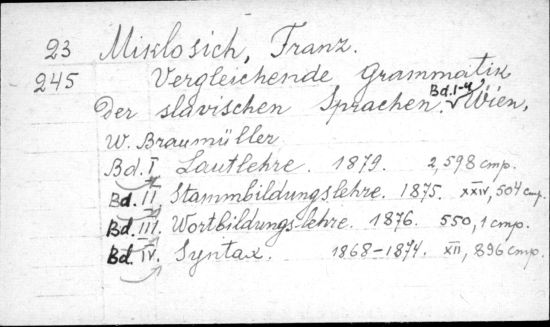 23 Miklosich, Franz.
245 Vergleichende Grammatik
der slavischen Sprachen. Bd. I-4 Wien,
W. Braumüller
Bd. I Lautlehre. 1879. 2, 598 стр.
Bd. II. Stammbildungslehre. 1875. XXIV, 504 стр.
Bd. III. Wortbildungslehre. 1876. 550, 1 стр.
Bd. IV. Syntax. 1868-1874. XII, 896 стр.